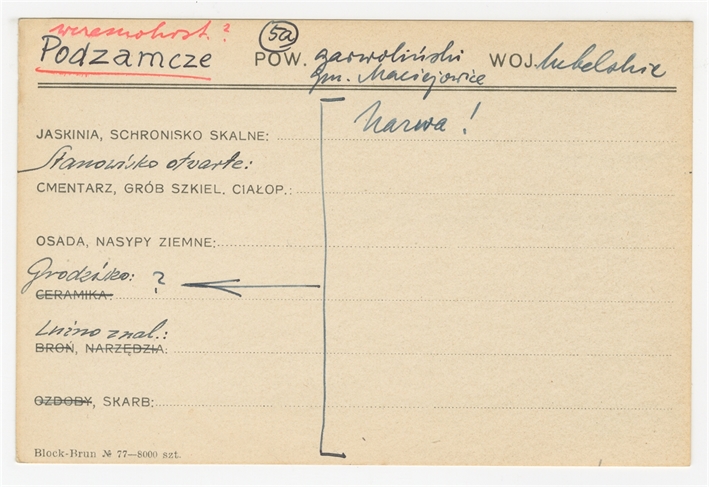 wczesnohist. ?
5a
Podzamcze POW. garwoliński WOJ. lubelskie
gm. Maciejowice
Nazwa!
JASKINIA, SCHRONISKO SKALNE:
Stanowisko otwarte:
CMENTARZ, GRÓB SZKIEL. CIAŁOP.:
OSADA, NASYPY ZIEMNE:
Grodzisko: ?
CERAMIKA:
Luźno znal.:
BROŃ, NARZĘDZIA:
OZDOBY, SKARB:
Block-Brun № 77—8000 szt.